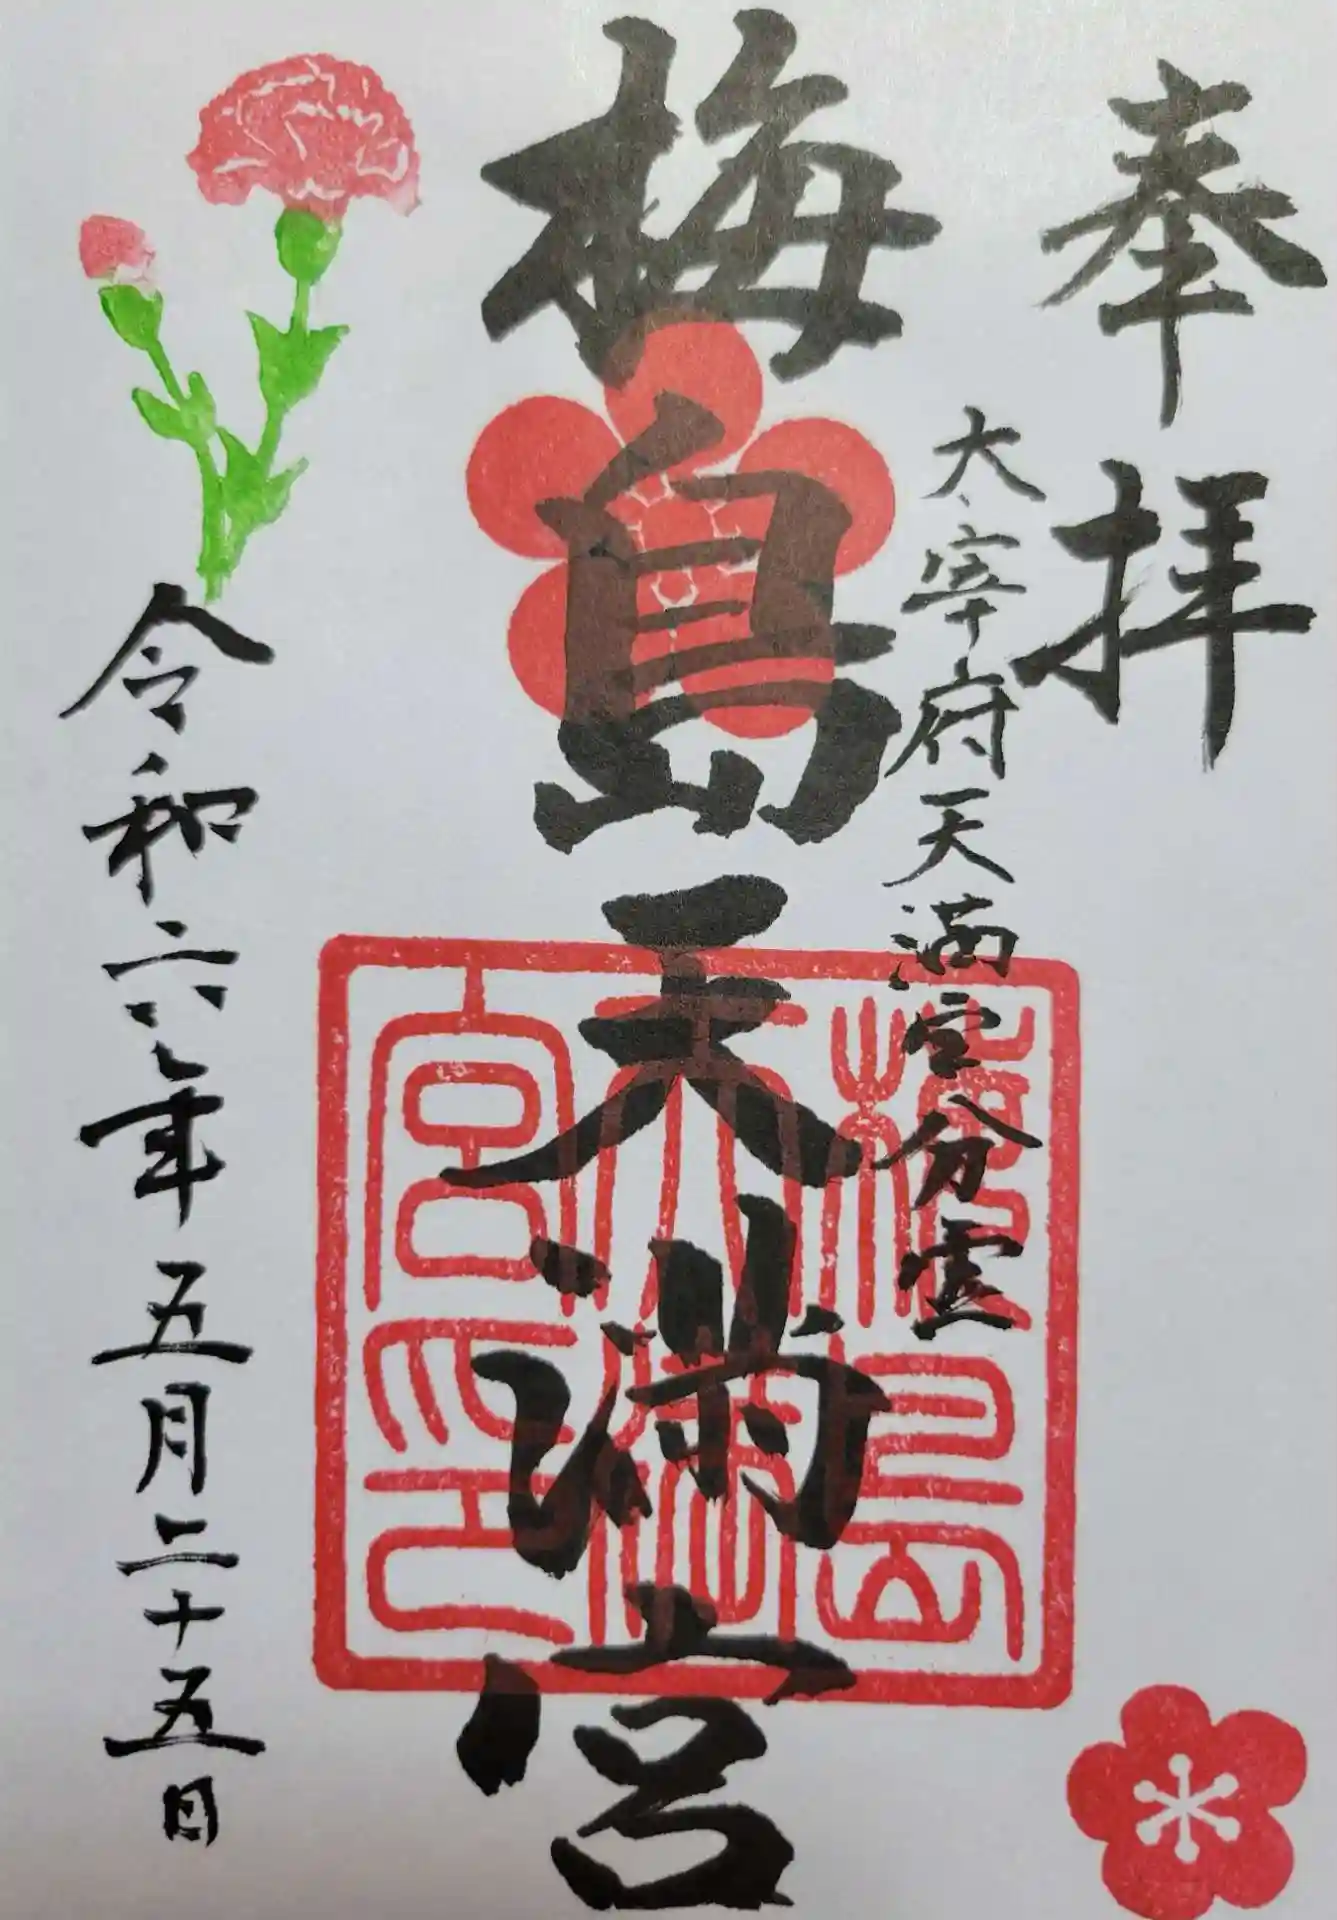 奉拝
太宰府天満宮分霊
梅島天満宮
梅島
天満
宮印
令和六年五月二十五日